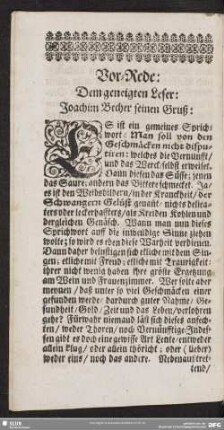 Vor-Rede:
Dem geneigten Leser:
Joachim Becher seinen Gruß:
ES ist ein gemeines Sprich-
wort: Man soll von den
Geschmäcken nicht dispu-
tiren: welches die Vernunfft/
und das Werck selbst erweiset.
Dann diesen das Süsse; jenen
das Saure; andern das Bittere schmecket. Ja/
es ist den Weibsbildern/in der Kranckheit/ der
Schwangern Gelüst genant/ nichts delica-
ters oder leckerhaffters/als Kreiden Kohlen und
dergleichen Genäsch. Wann man nun dieses
Sprichwort auff die inwendige Sinne ziehen
wolte; so wird es eben diese Warheit verdienen.
Dann daher belustigen sich etliche mit dem Sin-
gen; etliche mit Freud; etliche mit Traurigkeit;
ihrer nicht wenig haben ihre gröste Ergetzung
am Wein und Frauenzimmer. Wer solte aber
meynen/ daß unter so viel Geschmäcken einer
gefunden werde/ dardurch guter Nahme/ Ge-
sundheit/ Gold/ Zeit und das Leben/verlohren
gehe? Fürwahr niemand läst sich dieses anfech-
ten/ weder Thoren/ noch Vernünfftige. Indes-
sen gibt es doch eine gewisse Art Leute/entweder
allein klug/ oder allein thöricht; oder (lieber)
weder eins/ noch das andere.
tend/